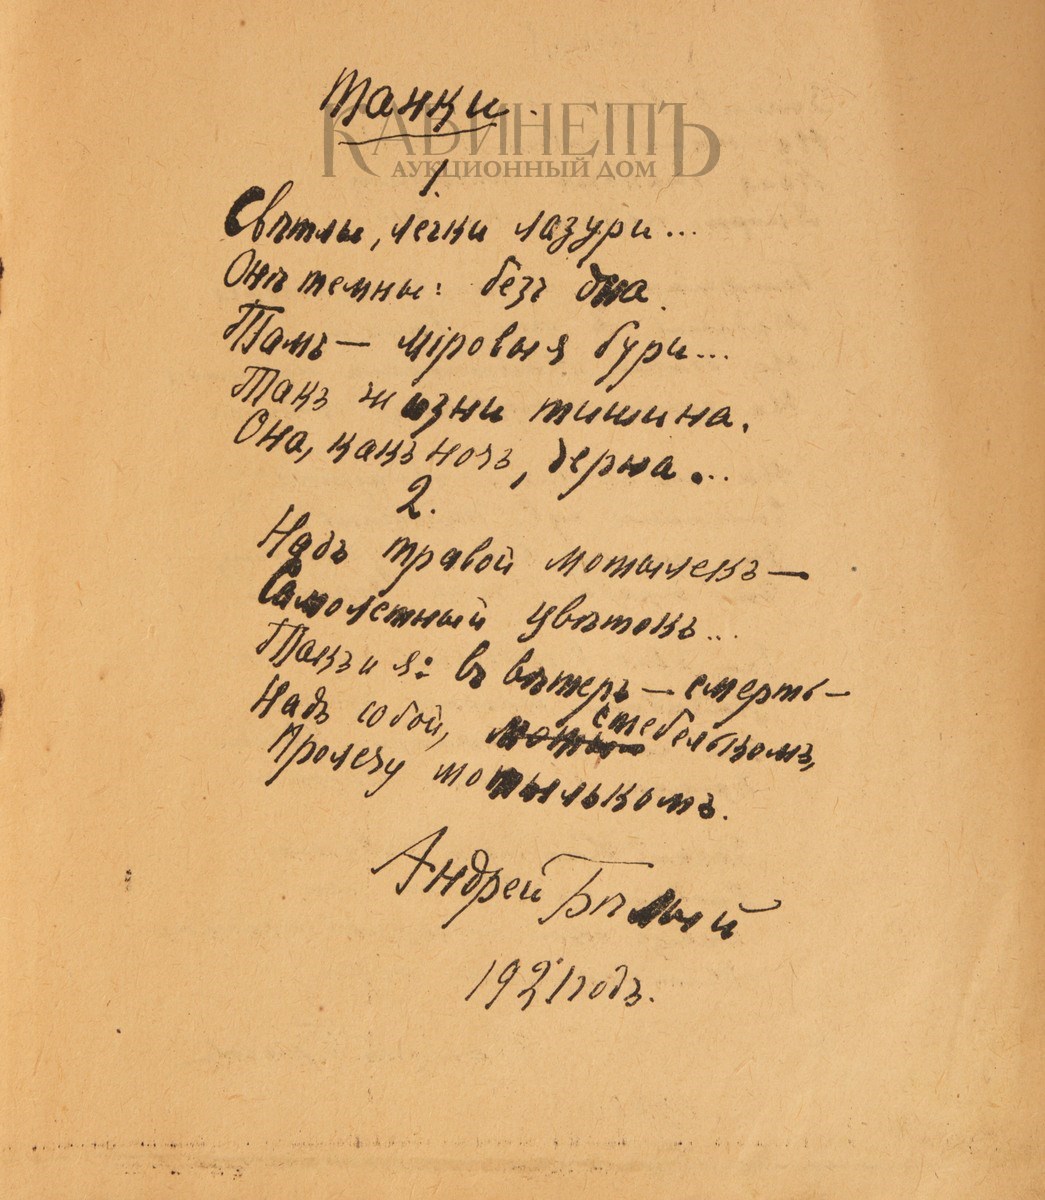 Танки.
КАБИНЕТЪ
АУКЦИОННЫЙ ДОМ
1.
Свѣтлы, легки лазури...
Онѣ темны: безъ дна.
Тамъ — міровыя бури...
Такъ жизни тишина.
Она, какъ ночь, черна...
2.
Надъ травой мотылекъ —
Самолетный цвѣтокъ...
Такъ и я: въ вѣтеръ — смерть —
Надъ собой, моты стебелькомъ,
Пролечу мотылькомъ.
Андрей Бѣлый
1921 годъ.